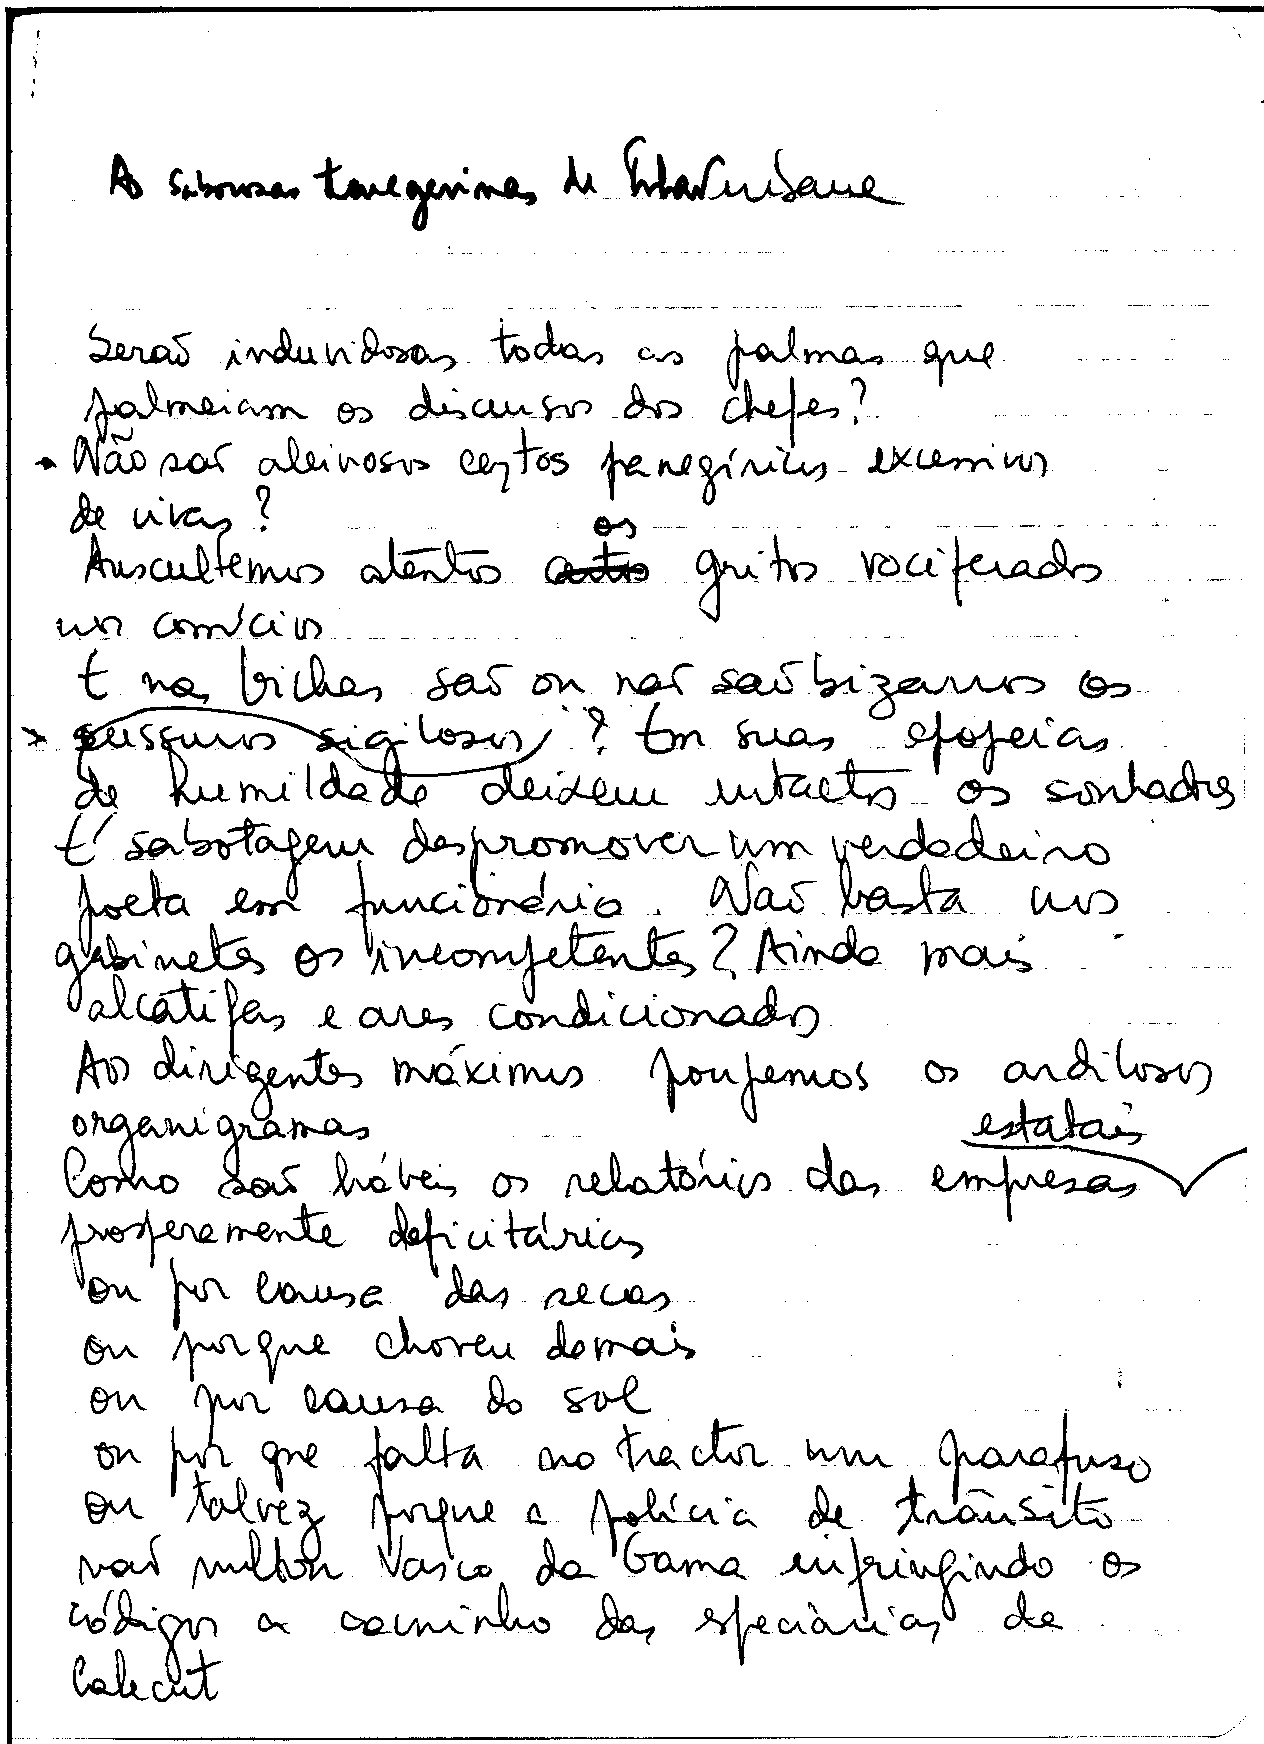 As saborosas tanegerinas de Inhambane
Serão induvidosas todas as palmas que
palmeiam os discursos dos chefes?
Não são aleivosos certos panegíricos excessivos
de vivas?
os
Auscultemos atentos gritos vociferados
nos comícios
E nas bichas são ou não são bizarros os
sussurros sigilosos? Em suas epopeias
de humildade deixem intactos os sonhadores
É sabotagem despromover um verdadeiro
poeta em funcionário. Não basta nos
gabinetes os incompetentes? Ainda mais
alcatifas e ares condicionados
Aos dirigentes máximos poupemos os ardilosos
organigramas
estatais
Como são hábeis os relatórios das empresas
prosperamente deficitárias
ou por causa das secas
ou porque choveu demais
ou por causa do sol
ou por que falta no tractor um parafuso
ou talvez porque a polícia de trânsito
não multou Vasco da Gama infringindo os
códigos a caminho das especiarias de
Calecut